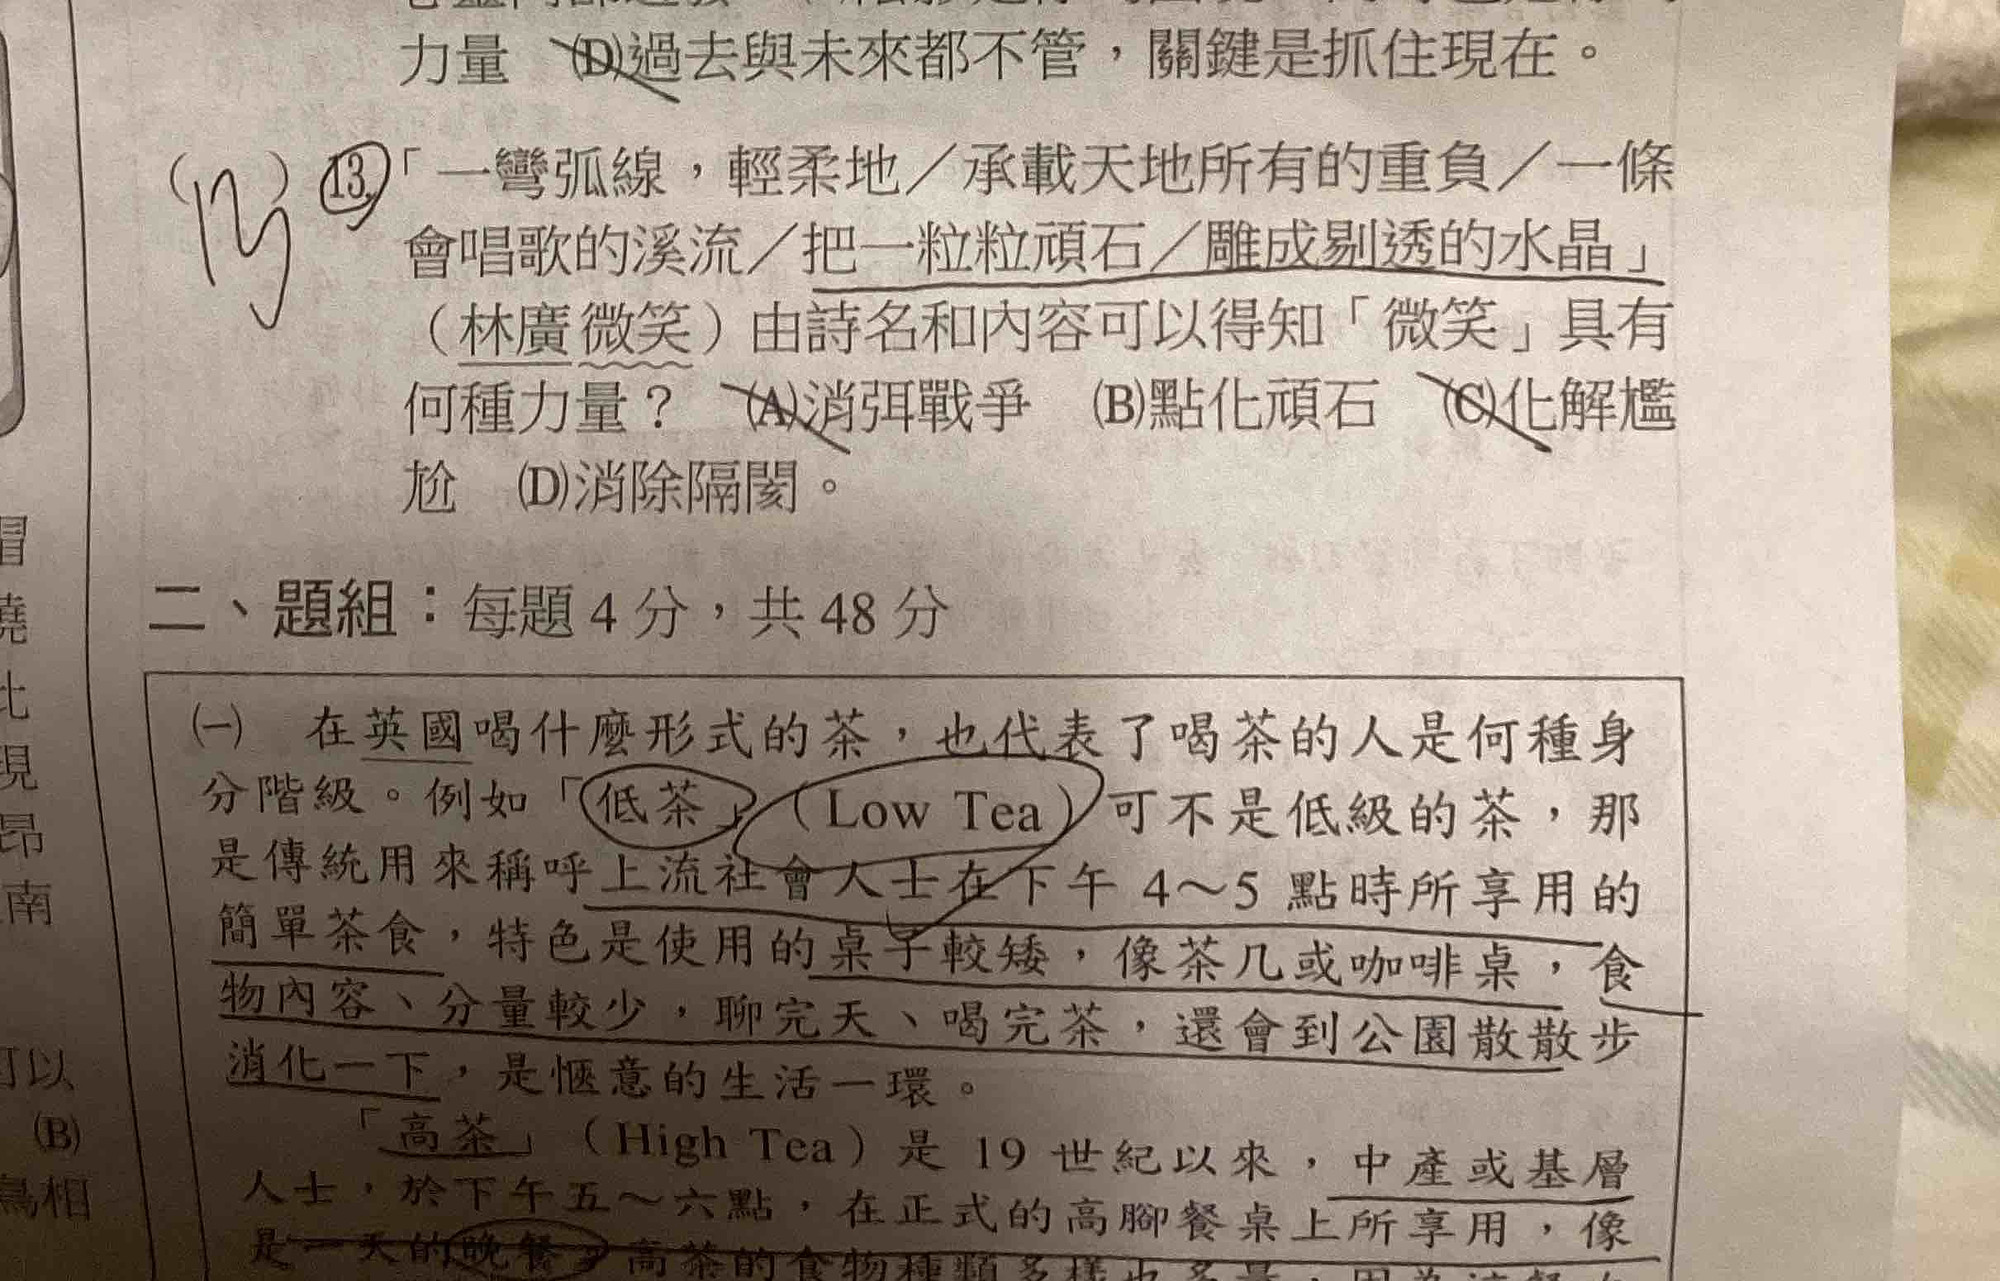 力量　(D)過去與未來都不管，關鍵是抓住現在。
13.「一彎弧線，輕柔地／承載天地所有的重負／一條
會唱歌的溪流／把一粒粒頑石／雕成剔透的水晶」
（林廣微笑）由詩名和內容可以得知「微笑」具有
何種力量？　(A)消弭戰爭　(B)點化頑石　(C)化解尷
尬　(D)消除隔閡。
二、題組：每題 4 分，共 48 分
㈠　在英國喝什麼形式的茶，也代表了喝茶的人是何種身
分階級。例如「低茶」（Low Tea）可不是低級的茶，那
是傳統用來稱呼上流社會人士在下午 4～5 點時所享用的
簡單茶食，特色是使用的桌子較矮，像茶几或咖啡桌，食
物內容、分量較少，聊完天、喝完茶，還會到公園散散步
消化一下，是愜意的生活一環。
「高茶」（High Tea）是 19 世紀以來，中產或基層
人士，於下午五～六點，在正式的高腳餐桌上所享用，像
是一天的晚餐，高茶的食物種類多樣也多量，因為這餐
北
現
昂
南
可以
(B)
相